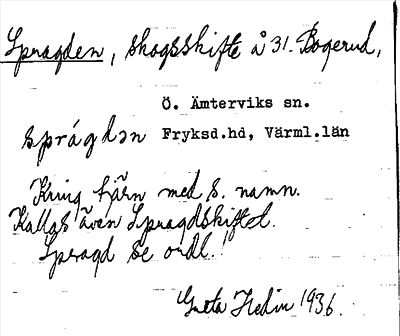 Spragden, skogsskifte å 31. Bogerud,
Ö. Ämterviks sn.
språgdən Fryksd.hd, Värml.län
Kring tjärn med s. namn.
Kallas även Spragdskiftet.
Spragd se ordl.!
Greta Hedin 1936.